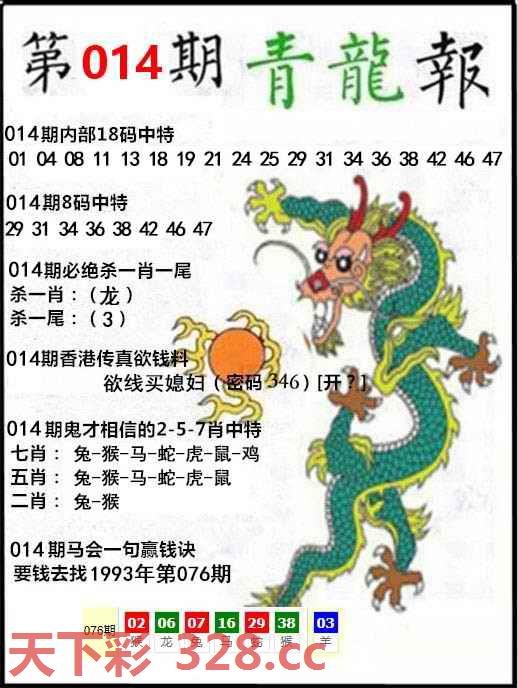 第014期青龍報
014期内部18码中特
01 04 08 11 13 18 19 21 24 25 29 31 34 36 38 42 46 47
014期8码中特
29 31 34 36 38 42 46 47
014期必绝杀一肖一尾
杀一肖：（龙）
杀一尾：（3）
014期香港传真欲钱料
欲线买媳妇（密码346）[开？]
014期鬼才相信的2-5-7肖中特
七肖：兔-猴-马-蛇-虎-鼠-鸡
五肖：兔-猴-马-蛇-虎-鼠
二肖：兔-猴
014期马会一句赢钱诀
要钱去找1993年第076期
076期 02 06 07 16 29 38 03
猴 龙 兔 马 猴 羊
天下彩 328.cc